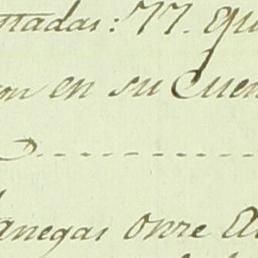 ntadas: 77. qu
en su Cuen
anegas onze